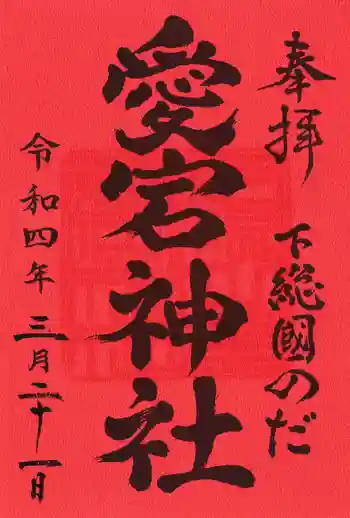 奉拝
下総國のだ
愛宕神社
令和四年三月二十一日